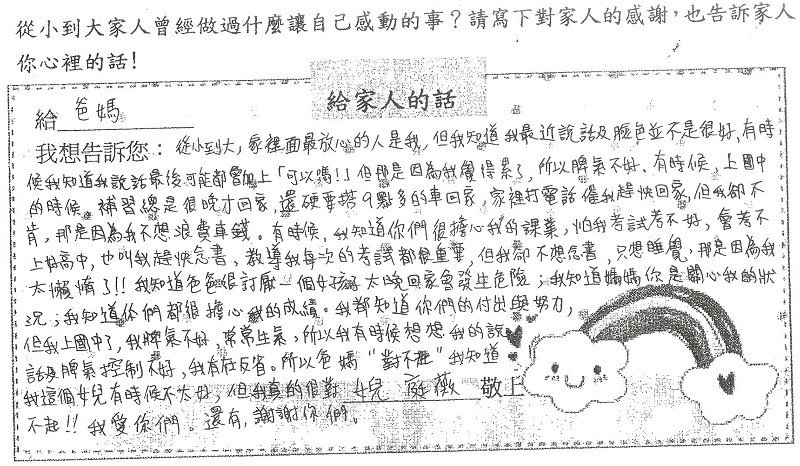 從小到大家人曾經做過什麼讓自己感動的事？請寫下對家人的感謝，也告訴家人
你心裡的話！
給家人的話
給 爸媽
我想告訴您：從小到大，家裡面最放心的人是我，但我知道我最近說話及臉色並不是很好，有時
候我知道我說話最後可能都會加上「可以嗎！」但那是因為我覺得累了，所以脾氣不好，有時候，上國中
的時候，補習總是很晚才回家，還硬要搭9點多的車回家，家裡打電話催我趕快回家，但我卻不
肯，那是因為我不想浪費車錢。有時候，我知道你們很擔心我的課業，怕我考試考不好，會考不
上好高中，也叫我趕快念書，教導我每次的考試都很重要，但我卻不想念書，只想睡覺，那是因為我
太懶惰了!!我知道爸爸很討厭一個女孩子太晚回家會發生危險；我知道媽媽你是關心我的狀
況；我知道你們都很擔心我的成績。我都知道你們的付出與努力，
但我上國中了，我脾氣不好，常常生氣，所以我有時候想想我的說
話及脾氣控制不好，我有在反省。所以爸媽“對不起”我知道
我這個女兒有時候不太好，但我真的很對
不起!!我愛你們。還有，謝謝你們。
女兒 庭薇 敬上